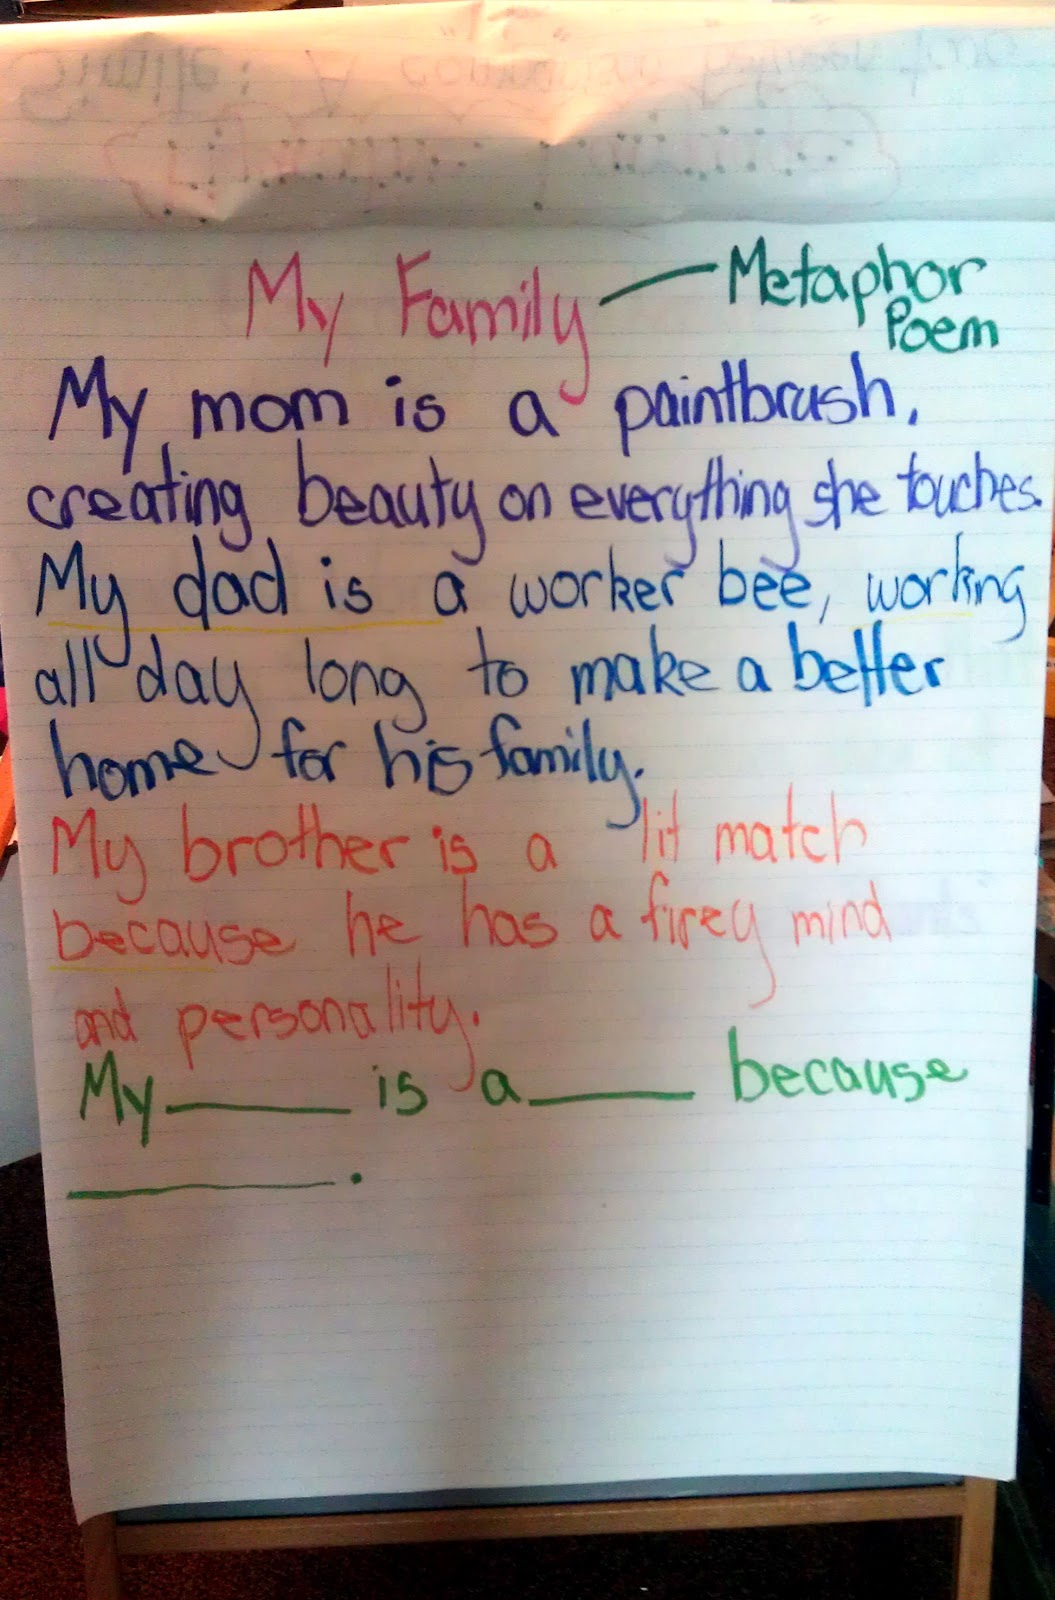 My Family — Metaphor
Poem
My mom is a paintbrush,
creating beauty on everything she touches.
My dad is a worker bee, working
all day long to make a better
home for his family.
My brother is a lit match
because he has a firey mind
and personality.
My ______ is a ______ because
______.